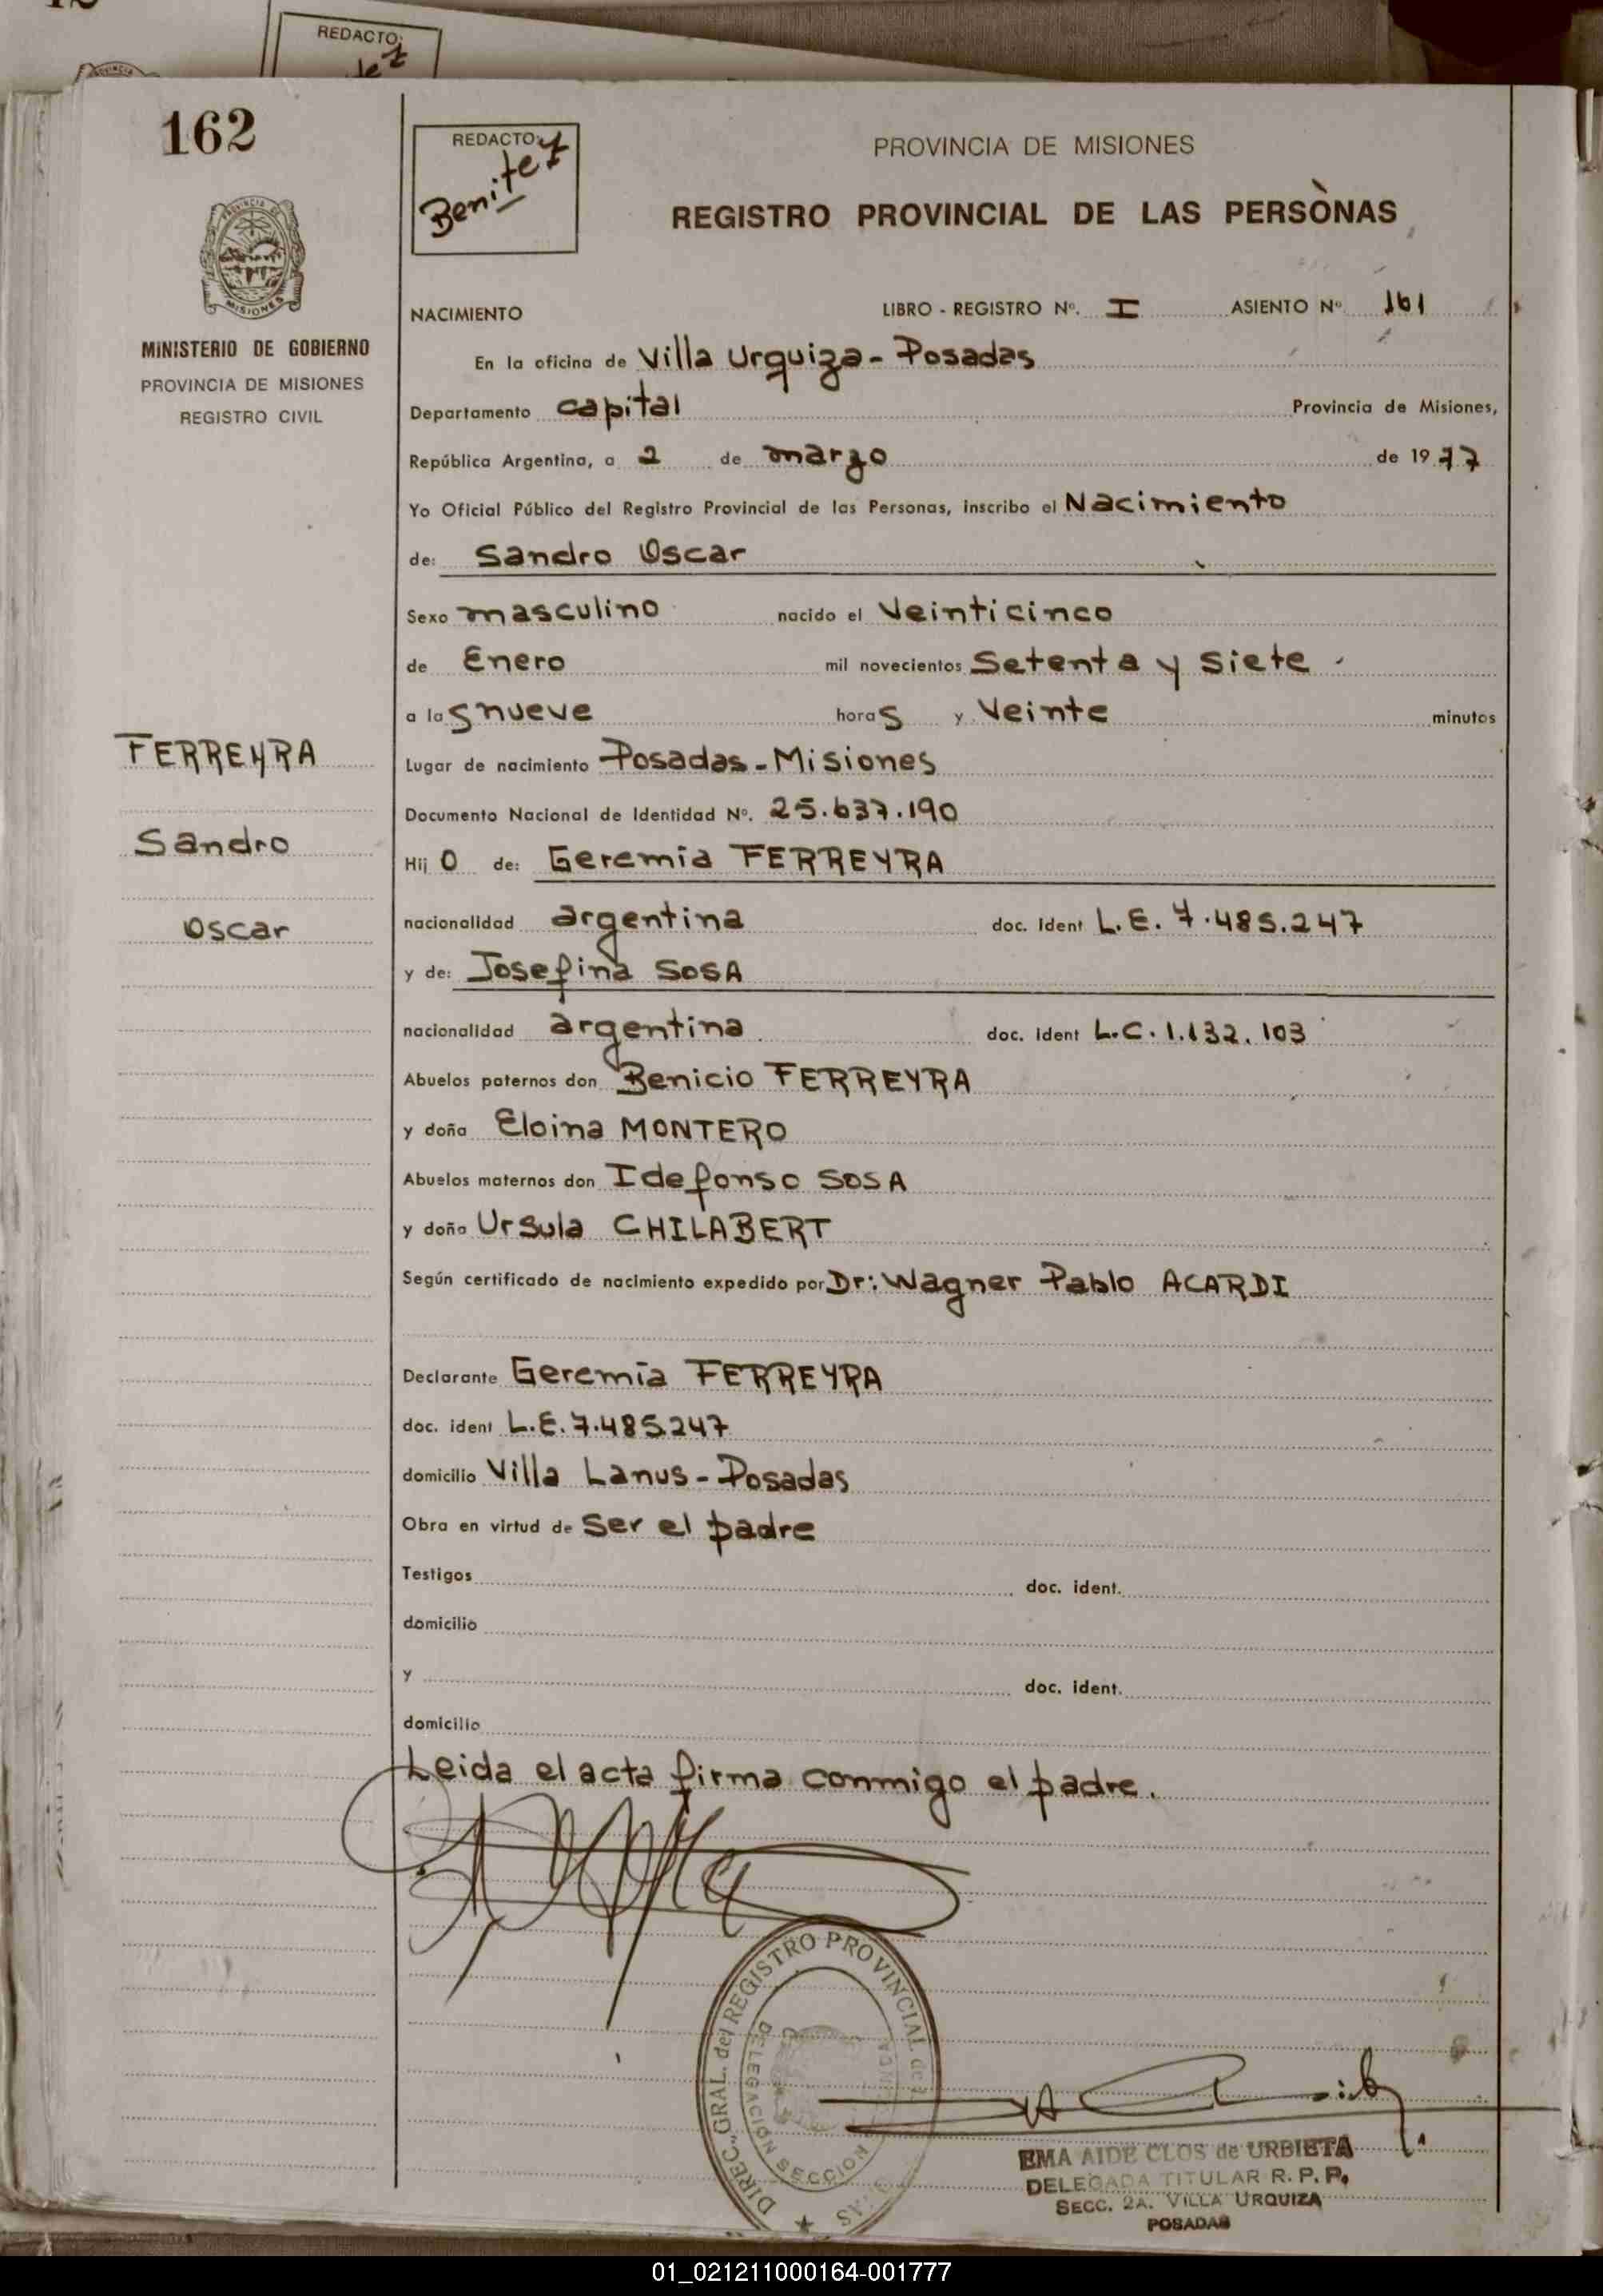 REDACTO:
162
REDACTO:
Benitez
PROVINCIA DE MISIONES
REGISTRO PROVINCIAL DE LAS PERSÒNAS
MISIONES
MINISTERIO DE GOBIERNO
PROVINCIA DE MISIONES
REGISTRO CIVIL
NACIMIENTO LIBRO - REGISTRO Nº. I ASIENTO Nº 161
En la oficina de Villa Urquiza - Posadas
Departamento capital Provincia de Misiones,
República Argentina, a 2 de marzo de 1977
Yo Oficial Público del Registro Provincial de las Personas, inscribo el Nacimiento
de: Sandro Oscar
Sexo masculino nacido el Veinticinco
de Enero mil novecientos Setenta y Siete
a las nueve horas y Veinte minutos
FERREYRA
Lugar de nacimiento Posadas - Misiones
Documento Nacional de Identidad Nº. 25.637.190
Sandro
Hijo de: Geremia FERREYRA
Oscar
nacionalidad argentina doc. ident L.E. 7.485.247
y de: Josefina SOSA
nacionalidad argentina doc. ident L.C. 1.132.103
Abuelos paternos don Benicio FERREYRA
y doña Eloina MONTERO
Abuelos maternos don Idefonso SOSA
y doña Ursula CHILABERT
Según certificado de nacimiento expedido por Dr: Wagner Pablo ACARDI
Declarante Geremia FERREYRA
doc. ident L.E. 7.485.247
domicilio Villa Lanus - Posadas
Obra en virtud de Ser el padre
Testigos doc. ident.
domicilio
y doc. ident.
domicilio
Leida el acta firma conmigo el padre.
DIREC. GRAL. del REGISTRO PROVINCIAL de
DELEGACIÓN SECCION
EMA AIDE CLOS de URBIETA
DELEGADA TITULAR R. P. P.
SECC. 2A. VILLA URQUIZA
POSADAS
01_021211000164-001777